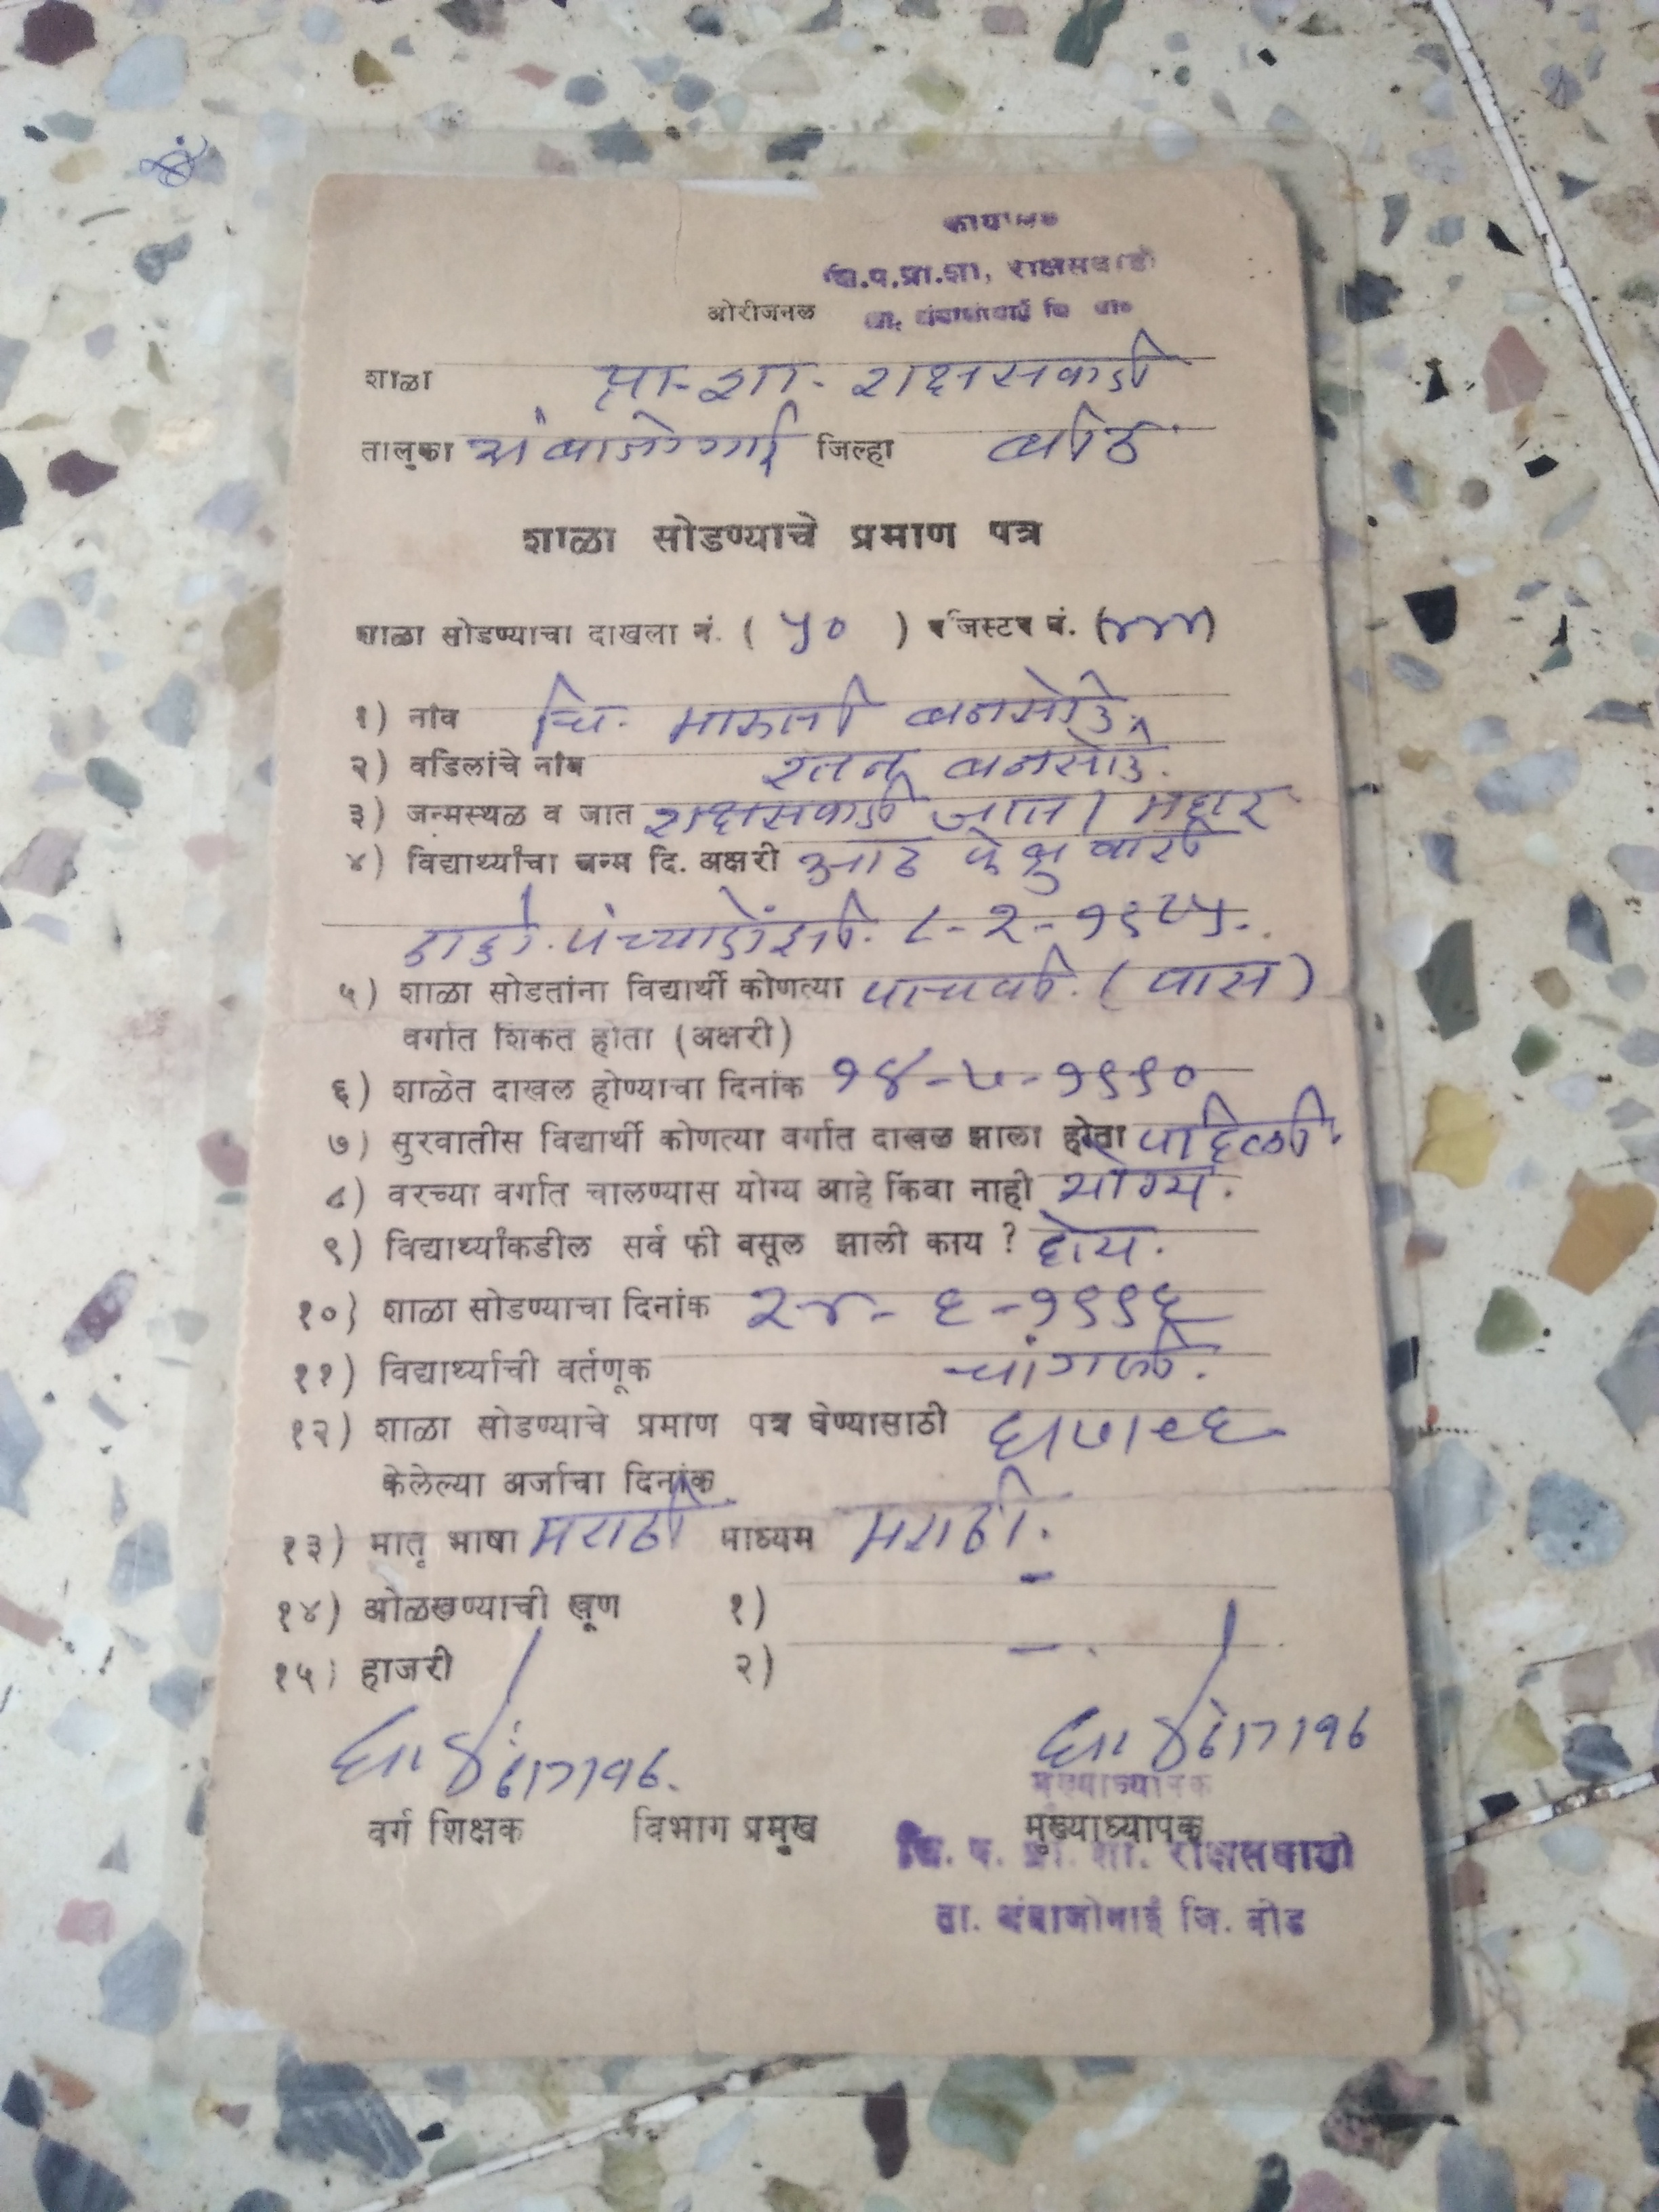 कार्यालय
जि.प.प्रा.शा, राक्षसवाडी
ओरीजनल ता. अंबाजोगाई जि बीड
शाळा प्रा. शा. राक्षसवाडी
तालुका अंबाजोगाई जिल्हा बीड
शाळा सोडण्याचे प्रमाण पत्र
शाळा सोडण्याचा दाखला नं. ( ५० ) रजिस्टर नं. (४४५)
१) नांव चि. मारुती बनसोडे.
२) वडिलांचे नांव रतन बनसोडे.
३) जन्मस्थळ व जात राक्षसवाडी जात। महार
४) विद्यार्थ्यांचा जन्म दि. अक्षरी आठ फेब्रुवारी
पंच्याऐंशी. ८-२-१९८५.
५) शाळा सोडतांना विद्यार्थी कोणत्या पाचवी. (पास)
वर्गात शिकत होता (अक्षरी)
६) शाळेत दाखल होण्याचा दिनांक १४-७-१९९०
७) सुरवातीस विद्यार्थी कोणत्या वर्गात दाखल झाला होता पहिली.
८) वरच्या वर्गात चालण्यास योग्य आहे किंवा नाही योग्य.
९) विद्यार्थ्यांकडील सर्व फी वसूल झाली काय ? होय.
१०) शाळा सोडण्याचा दिनांक २४-६-१९९६
११) विद्यार्थ्याची वर्तणूक चांगली.
१२) शाळा सोडण्याचे प्रमाण पत्र घेण्यासाठी ६।७।९६
केलेल्या अर्जाचा दिनांक
१३) मातृ भाषा मराठी माध्यम मराठी.
१४) ओळखण्याची खूण १) -
१५) हाजरी २) -.
6/7/96. 6/7/96
मुख्याध्यापक
वर्ग शिक्षक विभाग प्रमुख मुख्याध्यापक
जि. प. प्रा. शा. राक्षसवाडी
ता. अंबाजोगाई जि. बीड